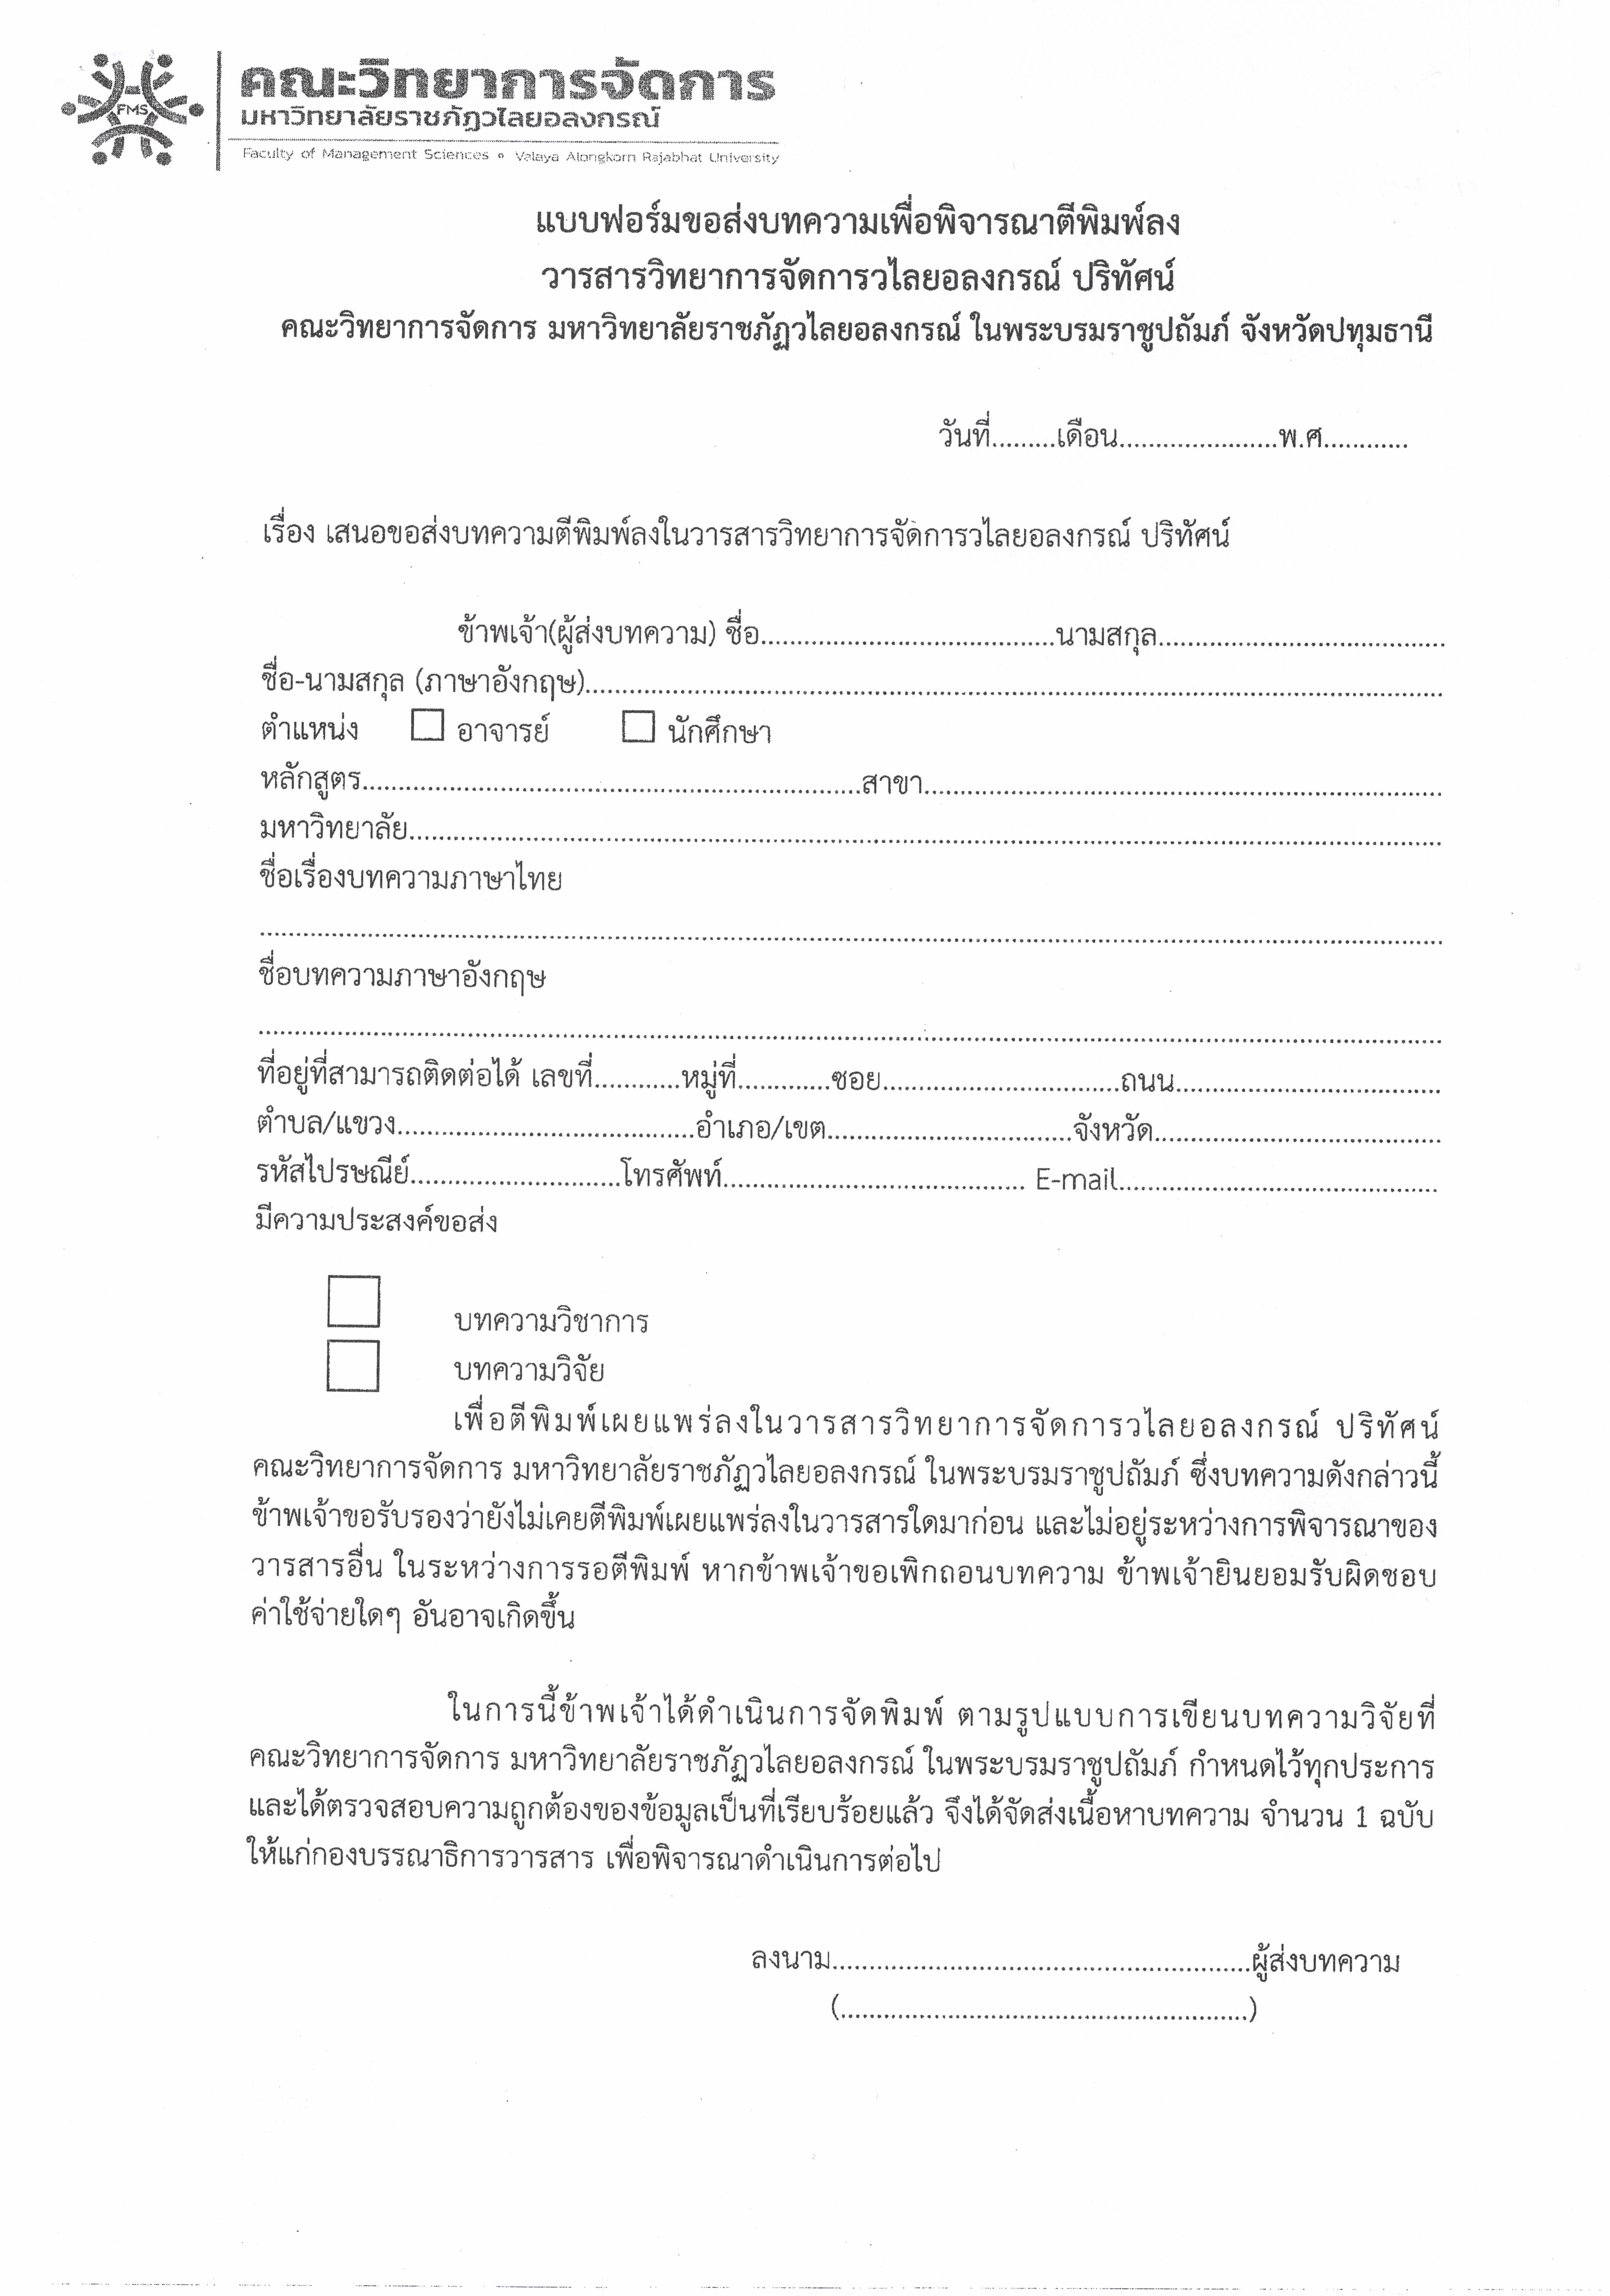 FMS
คณะวิทยาการจัดการ
มหาวิทยาลัยราชภัฏวไลยอลงกรณ์
Faculty of Management Sciences • Valaya Alongkorn Rajabhat University
แบบฟอร์มขอส่งบทความเพื่อพิจารณาตีพิมพ์ลง
วารสารวิทยาการจัดการวไลยอลงกรณ์ ปริทัศน์
คณะวิทยาการจัดการ มหาวิทยาลัยราชภัฏวไลยอลงกรณ์ ในพระบรมราชูปถัมภ์ จังหวัดปทุมธานี
วันที่.........เดือน......................พ.ศ............
เรื่อง เสนอขอส่งบทความตีพิมพ์ลงในวารสารวิทยาการจัดการวไลยอลงกรณ์ ปริทัศน์
ข้าพเจ้า(ผู้ส่งบทความ) ชื่อ.........................................นามสกุล........................................
ชื่อ-นามสกุล (ภาษาอังกฤษ)........................................................................................................................
ตำแหน่ง ☐ อาจารย์ ☐ นักศึกษา
หลักสูตร.....................................................................สาขา........................................................................
มหาวิทยาลัย................................................................................................................................................
ชื่อเรื่องบทความภาษาไทย
....................................................................................................................................................................
ชื่อบทความภาษาอังกฤษ
....................................................................................................................................................................
ที่อยู่ที่สามารถติดต่อได้ เลขที่............หมู่ที่.............ซอย.................................ถนน.....................................
ตำบล/แขวง.........................................อำเภอ/เขต..................................จังหวัด........................................
รหัสไปรษณีย์.............................โทรศัพท์.......................................... E-mail............................................
มีความประสงค์ขอส่ง
☐ บทความวิชาการ
☐ บทความวิจัย
เพื่อตีพิมพ์เผยแพร่ลงในวารสารวิทยาการจัดการวไลยอลงกรณ์ ปริทัศน์
คณะวิทยาการจัดการ มหาวิทยาลัยราชภัฏวไลยอลงกรณ์ ในพระบรมราชูปถัมภ์ ซึ่งบทความดังกล่าวนี้
ข้าพเจ้าขอรับรองว่ายังไม่เคยตีพิมพ์เผยแพร่ลงในวารสารใดมาก่อน และไม่อยู่ระหว่างการพิจารณาของ
วารสารอื่น ในระหว่างการรอตีพิมพ์ หากข้าพเจ้าขอเพิกถอนบทความ ข้าพเจ้ายินยอมรับผิดชอบ
ค่าใช้จ่ายใดๆ อันอาจเกิดขึ้น
ในการนี้ข้าพเจ้าได้ดำเนินการจัดพิมพ์ ตามรูปแบบการเขียนบทความวิจัยที่
คณะวิทยาการจัดการ มหาวิทยาลัยราชภัฏวไลยอลงกรณ์ ในพระบรมราชูปถัมภ์ กำหนดไว้ทุกประการ
และได้ตรวจสอบความถูกต้องของข้อมูลเป็นที่เรียบร้อยแล้ว จึงได้จัดส่งเนื้อหาบทความ จำนวน 1 ฉบับ
ให้แก่กองบรรณาธิการวารสาร เพื่อพิจารณาดำเนินการต่อไป
ลงนาม..........................................................ผู้ส่งบทความ
(.........................................................)